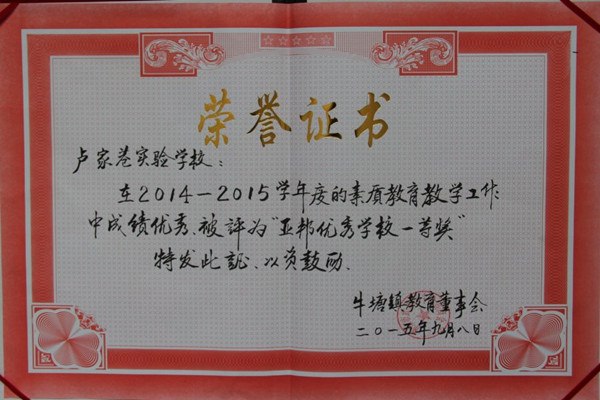 荣誉证书
卢家巷实验学校：
在2014—2015学年度的素质教育教学工作
中成绩优秀、被评为“亚邦优秀学校一等奖”
特发此证、以资鼓励、
牛塘鎮教育董事会
二〇一五年九月八日